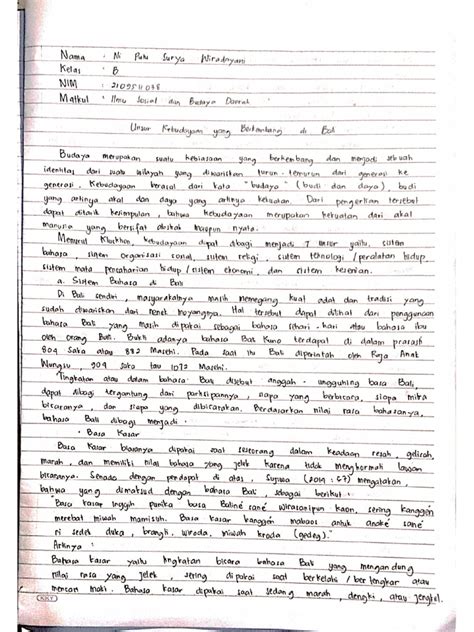 Nama : Ni Putu Surya Wiradnyani
Kelas : B
NIM : 2109511038
Matkul : Ilmu Sosial dan Budaya Daerah
Unsur Kebudayaan yang Berkembang di Bali
Budaya merupakan suatu kebiasaan yang berkembang dan menjadi sebuah
identitas dari suatu wilayah yang diwariskan turun-temurun dari generasi ke
generasi. Kebudayaan berasal dari kata "budaya" (budi dan daya), budi
yang artinya akal dan daya yang artinya kekuatan. Dari pengertian tersebut
dapat ditarik kesimpulan, bahwa kebudayaan merupakan kekuatan dari akal
manusia yang bersifat abstrak maupun nyata.
Menurut Kluckhon, kebudayaan dapat dibagi menjadi 7 unsur yaitu, sistem
bahasa, sistem organisasi sosial, sistem religi, sistem teknologi /peralatan hidup,
sistem mata pencaharian hidup /sistem ekonomi, dan sistem kesenian.
a. Sistem Bahasa di Bali
Di Bali sendiri, masyarakatnya masih memegang kuat adat dan tradisi yang
sudah diwariskan dari nenek moyangnya. Hal tersebut dapat dilihat dari penggunaan
bahasa Bali yang masih dipakai sebagai bahasa sehari-hari atau bahasa ibu
oleh orang Bali. Bukti adanya bahasa Bali Kuno terdapat di dalam prasasti
804 Saka atau 882 Masehi. Pada saat itu Bali diperintah oleh Raja Anak
Wungsu, 904 saka tau 1072 Masehi.
Tingkatan atau dalam bahasa Bali disebut anggah-ungguhing basa Bali,
dapat dibagi tergantung dari partisipannya, siapa yang berbicara, siapa mitra
bicaranya, dan siapa yang dibicarakan. Berdasarkan nilai rasa bahasanya,
bahasa Bali dibagi menjadi :
· Basa Kasar
Basa Kasar biasanya dipakai saat seseorang dalam keadaan resah, gelisah,
marah, dan memiliki nilai bahasa yang jelek karena tidak menghormati lawan
bicaranya. Senada dengan pendapat di atas, Suwija (2014 : 67) mengatakan,
bahwa yang dimaksud dengan bahasa Bali sebagai berikut :
"Basa kasar inggih punika basa Baliné sané wirasanipun kaon, sering kanggén
merebat miwah mamisuh. Basa Kasar kanggén mabaos antuk anaké sané
sedek duka, brangti, wiroda, miwah kroda (gedeg)."
Artinya :
Bahasa kasar yaitu tingkatan bicara bahasa Bali yang mengandung
nilai rasa yang jelek, sering dipakai saat berkelahi / bertengkar atau
mencaci maki. Bahasa kasar dipakai saat sedang marah, dengki, atau jengkel.
KIKY